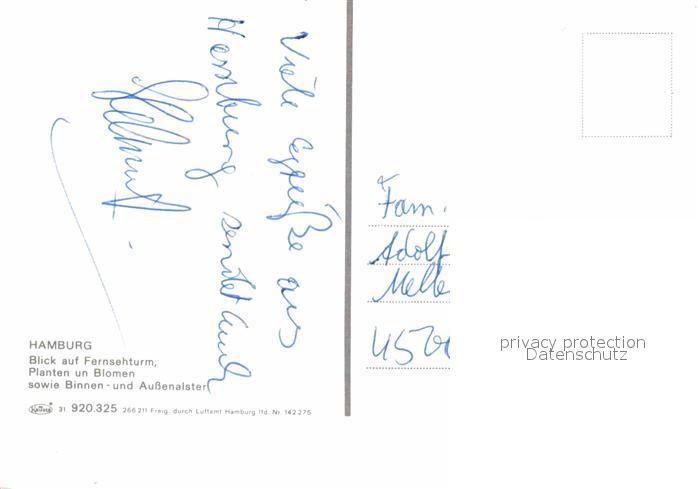 Viele Grüße aus
Hamburg sendet Euch
Helmut.
Fam.
Adolf
Melle
4520
HAMBURG
Blick auf Fernsehturm,
Planten un Blomen
sowie Binnen - und Außenalster
Krüger
31. 920.325 266 211 Freig. durch Luftamt Hamburg lfd. Nr. 142 275
privacy protection
Datenschutz